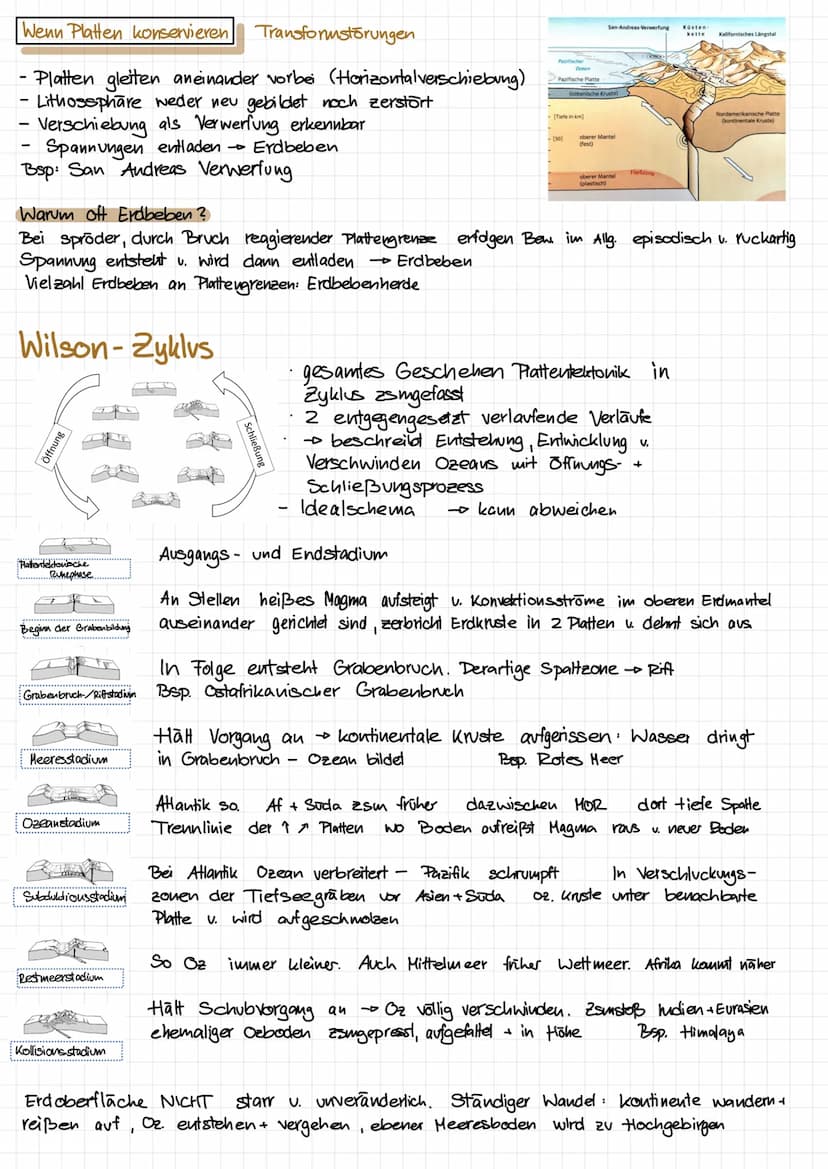 Wenn Platten konservieren Transformstörungen
- Platten gleiten aneinander vorbei (Horizontalverschiebung)
- Lithossphäre weder neu gebildet noch zerstört
- Verschiebung als Verwerfung erkennbar
- Spannungen entladen → Erdbeben
Bsp: San Andreas Verwerfung
San-Andreas-Verwerfung
Küsten-
kette
Kalifornisches Längstal
Pazifischer
Ozean
Pazifische Platte
(ozeanische Kruste)
Nordamerikanische Platte
(kontinentale Kruste)
[Tiefe in km]
[50]
oberer Mantel
(fest)
oberer Mantel
(plastisch)
Fließzone
Warum oft Erdbeben?
Bei spröder, durch Bruch reagierender Plattengrenze erfolgen Bew. im Allg. episodisch u. ruckartig
Spannung entsteht u. wird dann entladen → Erdbeben
Vielzahl Erdbeben an Plattengrenzen: Erdbebenherde
Wilson-Zyklus
Öffnung
Schließung
· gesamtes Geschehen Plattentektonik in
Zyklus zsmgefasst
· 2 entgegengesetzt verlaufende Verläufe
· → beschreibt Entstehung, Entwicklung u.
Verschwinden Ozeans mit Öffnungs- +
Schließungsprozess
- Idealschema → kann abweichen
Plattentektonische
Ruhephase
Ausgangs- und Endstadium
Beginn der Grabenbildung
An Stellen heißes Magma aufsteigt u. Konvektionsströme im oberen Erdmantel
auseinander gerichtet sind, zerbricht Erdkruste in 2 Platten u. dehnt sich aus
Grabenbruch-/Riftstadium
In Folge entsteht Grabenbruch. Derartige Spaltzone → Rift
Bsp. Ostafrikanischer Grabenbruch
Meeresstadium
Hält Vorgang an → kontinentale Kruste aufgerissen: Wasser dringt
in Grabenbruch – Ozean bildet Bsp. Rotes Meer
Ozeanstadium
Atlantik so. Af + Süda zsm früher dazwischen MOR dort tiefe Spalte
Trennlinie der ↑ ↗ Platten wo Boden aufreißt Magma raus u. neuer Boden
Subduktionsstadium
Bei Atlantik Ozean verbreitert – Pazifik schrumpft In Verschluckungs-
zonen der Tiefseegräben vor Asien + Süda oz. Kruste unter benachbarte
Platte u. wird aufgeschmolzen
Restmeerstadium
So Oz immer kleiner. Auch Mittelmeer früher Weltmeer. Afrika kommt näher
Kollisionsstadium
Hält Schubvorgang an → Oz völlig verschwinden. Zsmstoß Indien + Eurasien
ehemaliger Ozboden zsmgepresst, aufgefaltet + in Höhe Bsp. Himalaya
Erdoberfläche NICHT starr u. unveränderlich. Ständiger Wandel: Kontinente wandern +
reißen auf, Oz. entstehen + vergehen, ebener Meeresboden wird zu Hochgebirgen